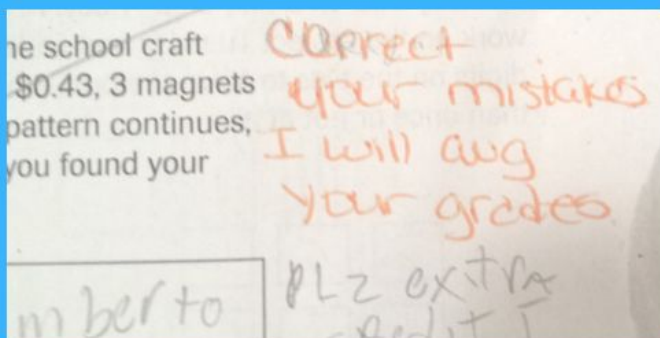 he school craft
$0.43, 3 magnets
pattern continues,
you found your
Correct
your mistakes
I will avg
your grades.
mber to
PLZ extrA
credit I